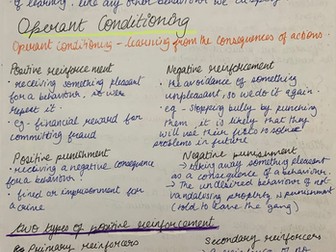 of learning, like any other behaviours we
Operant Conditioning
Operant conditioning - learning from the consequences of actions.
Positive reinforcement
• receiving something pleasant
for a behaviour, so we'll
repeat it.
• eg - financial reward for
committing fraud
Negative reinforcement
• the avoidance of something
unpleasant, so we do it again
• eg - stopping bully by punching
them it is likely that they
will use their fists to solve
problems in future
Positive punishment
• receiving a negative consequence
for a behaviour
• fined or imprisonment for
a crime
Negative punishment
• taking away something pleasant
as a consequence of a behaviour.
• The undesired behaviour of not
vandalising property is punishment
(told to leave the gang)
two types of positive reinforcement
Primary reinforcers
Secondary reinforcers